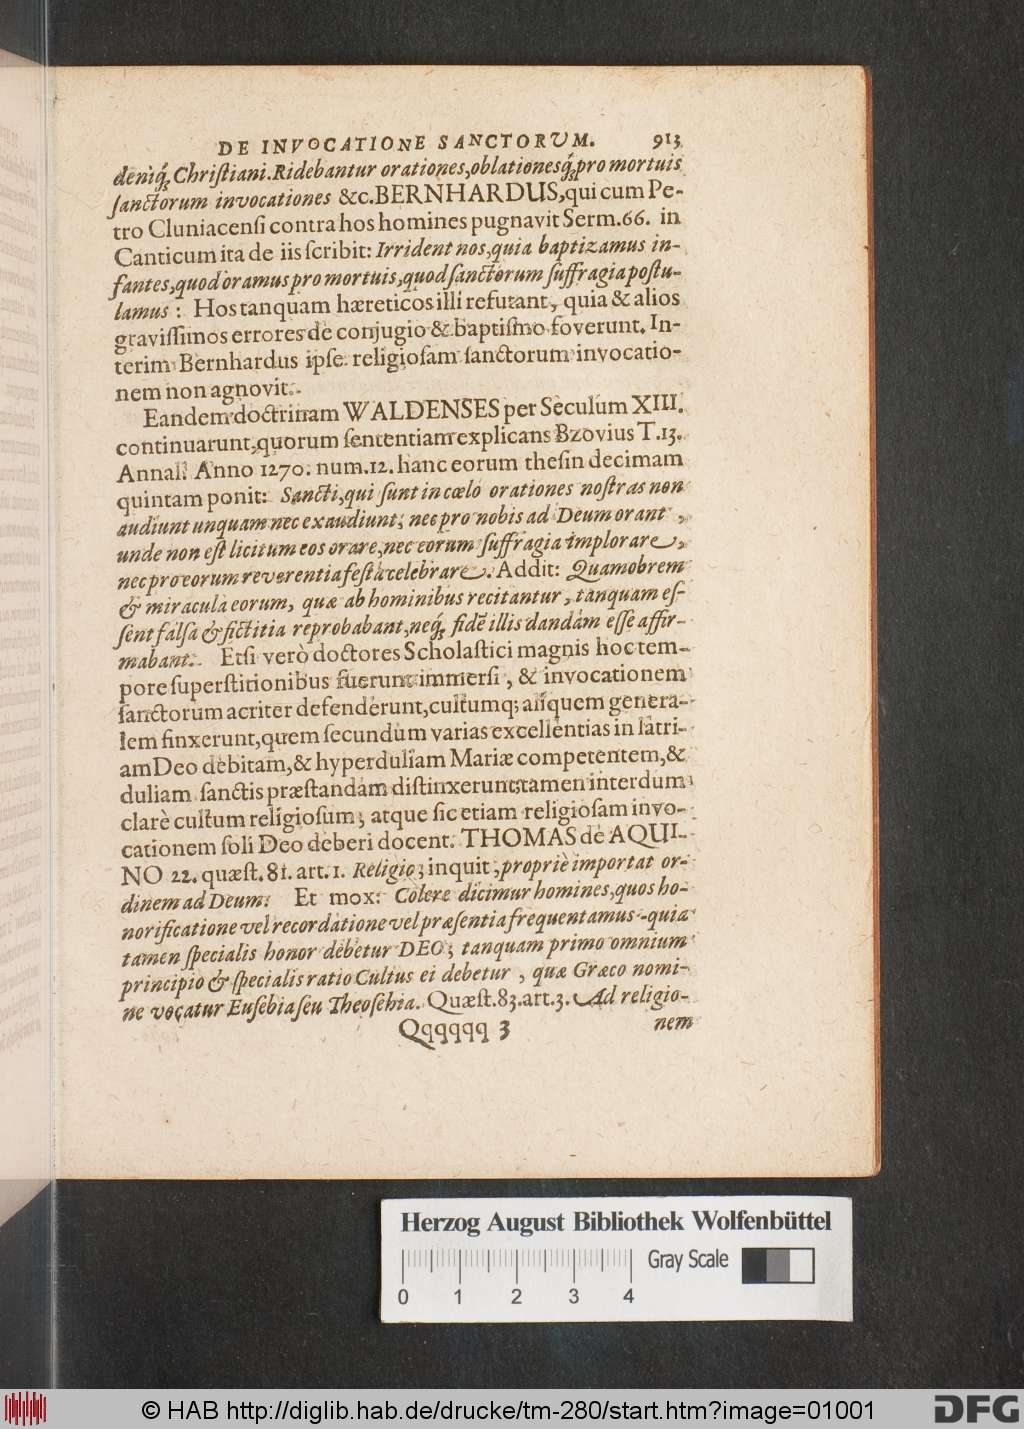 DE INVOCATIONE SANCTORUM. 913
deniq́; Chriſtiani. Ridebantur orationes, oblationesq́; pro mortuis
ſanctorum invocationes &c. BERNHARDUS, qui cum Pe-
tro Cluniacenſi contra hos homines pugnavit Serm. 66. in
Canticum ita de iis ſcribit: Irrident nos, quia baptizamus in-
fantes, quod oramus pro mortuis, quod ſanctorum ſuffragia poſtu-
lamus: Hos tanquam hæreticos illi refutant, quia & alios
graviſſimos errores de conjugio & baptiſmo foverunt. In-
terim Bernhardus ipſe religioſam ſanctorum invocatio-
nem non agnovit.
Eandem doctrinam WALDENSES per Seculum XIII.
continuarunt, quorum ſententiam explicans Bzovius T. 13.
Annal. Anno 1270. num. 12. hanc eorum theſin decimam
quintam ponit: Sancti, qui ſunt in cœlo orationes noſtras non
audiunt unquam nec exaudiunt; nec pro nobis ad Deum orant,
unde non eſt licitum eos orare, nec eorum ſuffragia implorare,
nec pro eorum reverentia feſta celebrare. Addit: Quamobrem
& miracula eorum, quæ ab hominibus recitantur, tanquam eſ-
ſent falſa & fictitia reprobabant, neq́; fidē illis dandam eſſe affir-
mabant. Etſi verò doctores Scholaſtici magnis hoc tem-
pore ſuperſtitionibus fuerunt immerſi, & invocationem
ſanctorum acriter defenderunt, cultumq; aliquem genera-
lem finxerunt, quem ſecundum varias excellentias in latri-
am Deo debitam, & hyperduliam Mariæ competentem, &
duliam ſanctis præſtandam diſtinxerunt; tamen interdum
clarè cultum religioſum; atque ſic etiam religioſam invo-
cationem ſoli Deo deberi docent. THOMAS de AQUI-
NO 22. quæſt. 81. art. 1. Religio; inquit, propriè importat or-
dinem ad Deum: Et mox: Colere dicimur homines, quos ho-
norificatione vel recordatione vel præſentia frequentamus - quia
tamen ſpecialis honor debetur DEO; tanquam primo omnium
principio & ſpecialis ratio Cultus ei debetur, quæ Græco nomi-
ne vocatur Euſebia ſeu Theoſebia. Quæſt. 83. art. 3. Ad religio-
Qqqqqq 3 nem
Herzog August Bibliothek Wolfenbüttel
Gray Scale
0 1 2 3 4
© HAB http://diglib.hab.de/drucke/tm-280/start.htm?image=01001
DFG